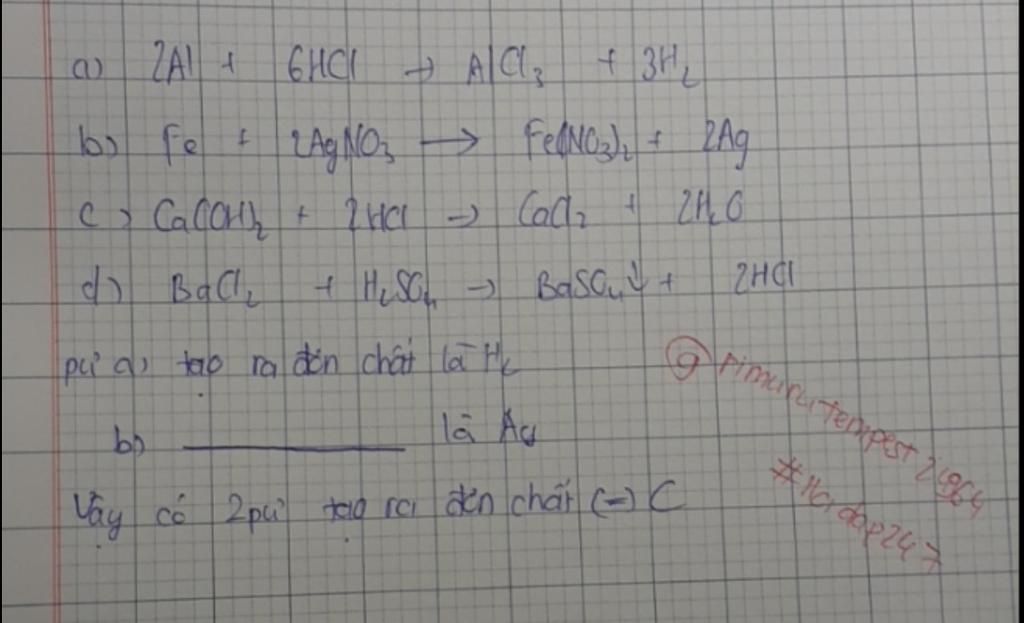 a) 2Al + 6HCl → AlCl₃ + 3H₂
b) Fe + 2AgNO₃ → Fe(NO₃)₂ + 2Ag
c) Ca(OH)₂ + 2HCl → CaCl₂ + 2H₂O
d) BaCl₂ + H₂SO₄ → BaSO₄↓ + 2HCl
pứ a) tạo ra đơn chất là H₂
b) ———— là Ag
Vậy có 2 pứ tạo ra đơn chất (→) C
@rimurutempest21964
#Hoidap247